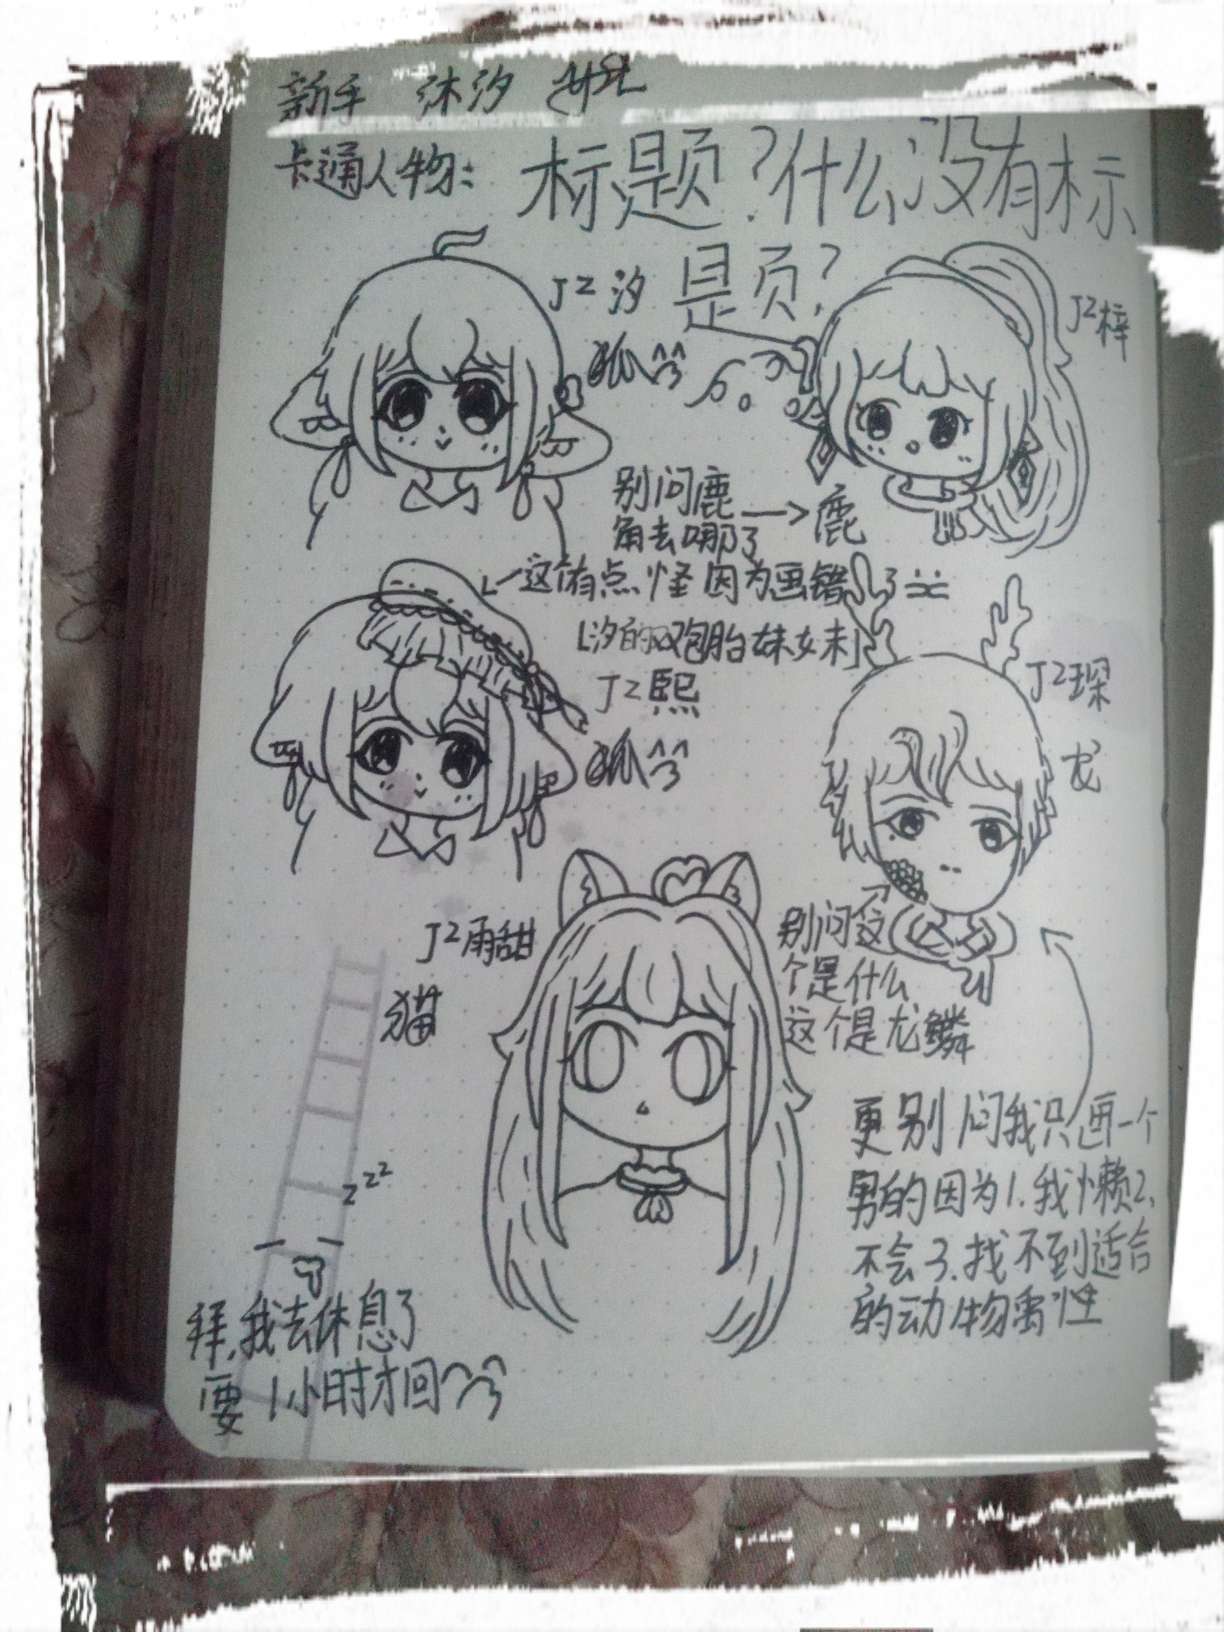 新手 沐汐
卡通人物:
标题?什么没有标
题?
JZ汐
狐^3^
JZ梓
别问鹿
角去哪了
→鹿
这个有点怪因为画错了
汐的双胞胎妹妹
JZ熙
狐^3^
JZ琛
龙
JZ雨甜
猫
别问这
个是什么
这个是龙鳞
更别问我只画一个
男的因为1.我懒2.
不会3.找不到适合
的动物属性
zzz
拜,我去休息了
要1小时才回^3^